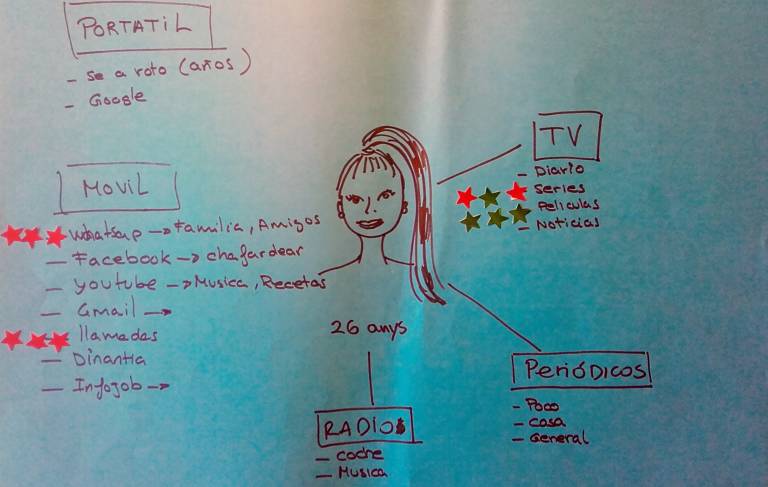 PORTATIL
- se a roto (años)
- Google
MOVIL
whatsap -> Familia, Amigos
- Facebook -> chafardear
- youtube -> Musica, Recetas
- Gmail ->
- llamadas
- Dinantia
- Infojob ->
TV
- Diario
- Series
- Peliculas
- Noticias
26 anys
RADIO
- coche
- Musica
PERIÓDICOS
- Poco
- casa
- General